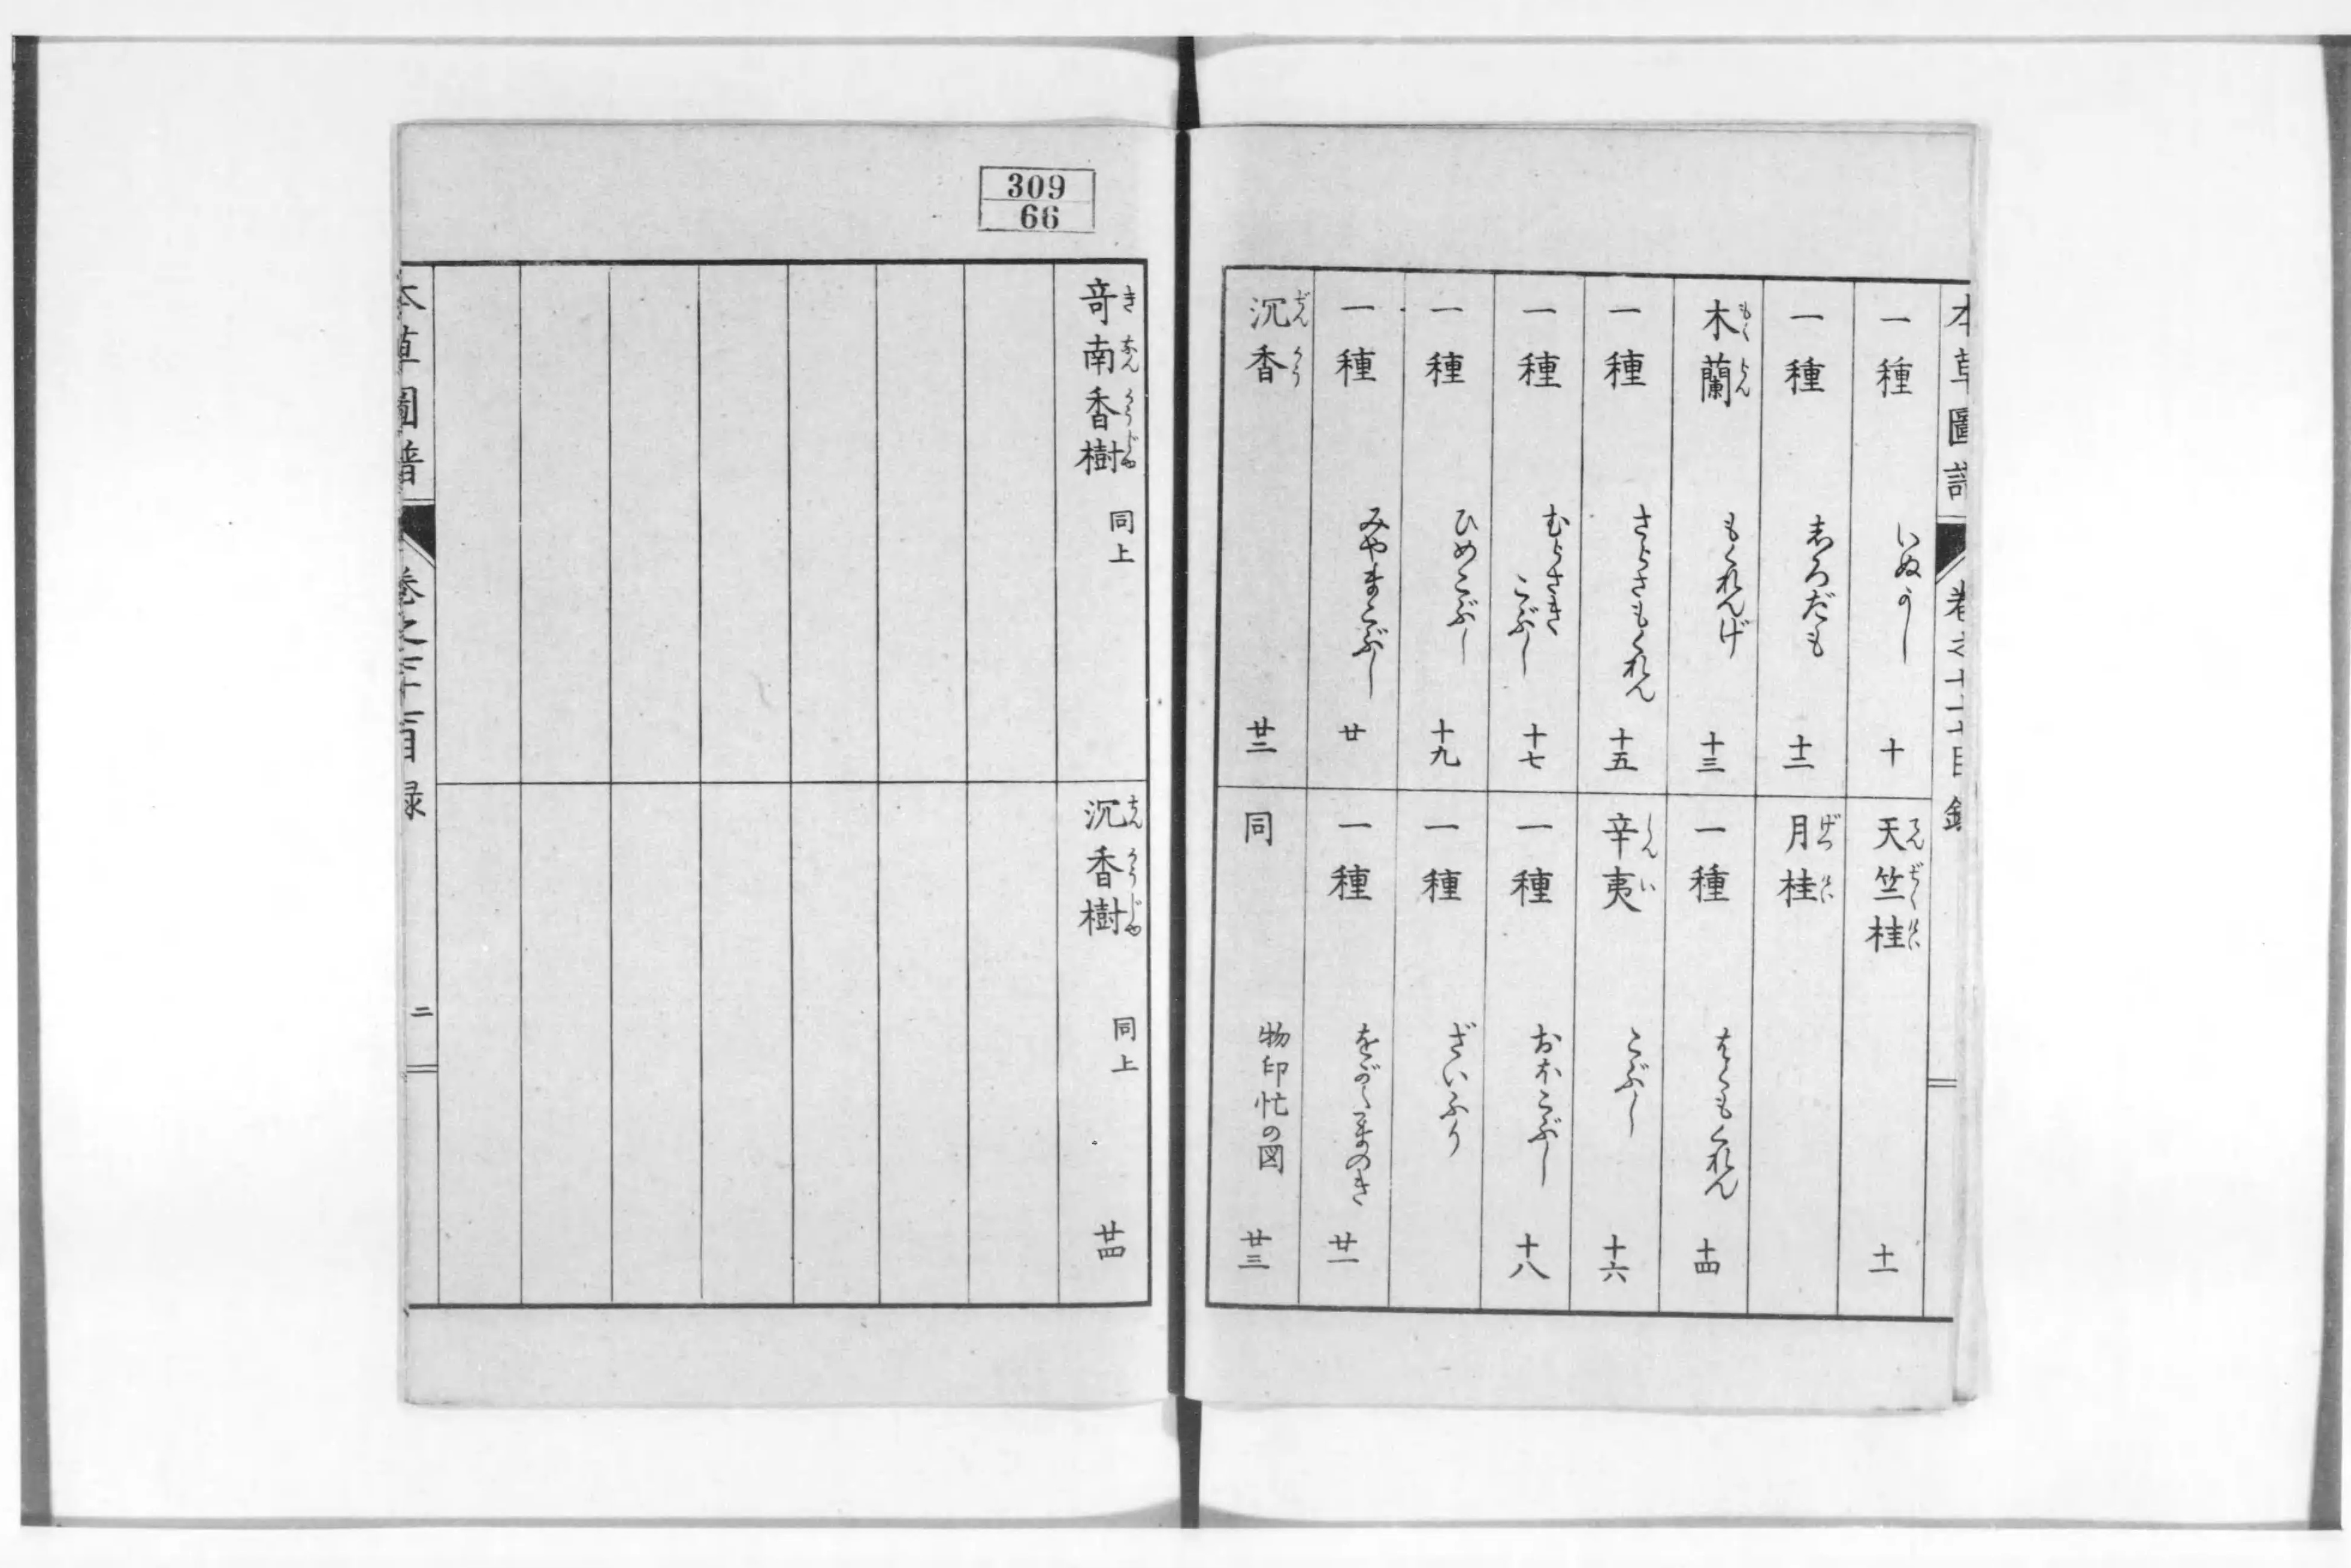 本草圖譜 卷之 目錄
一種 いぬぐし 十
一種 志ろだも 十二
木蘭 もくらん もくれんげ 十三
一種 さらさもくれん 十五
一種 むらさきこぶし 十七
一種 ひめこぶし 十九
一種 みやまこぶし 廿
沉香 ぢんかう 廿二
天竺桂 てんぢくけい 十一
月桂 げつけい
一種 はくもくれん 十四
辛夷 しんい こぶし 十六
一種 おほこぶし 十八
一種 ざいふり
一種 をがたまのき 廿一
同 物印忙の図 廿三
309
66
竒南香樹 きなんかうじゆ 同上
沉香樹 ちんかうじゆ 同上 廿四
本草圖譜 卷之 目録 二